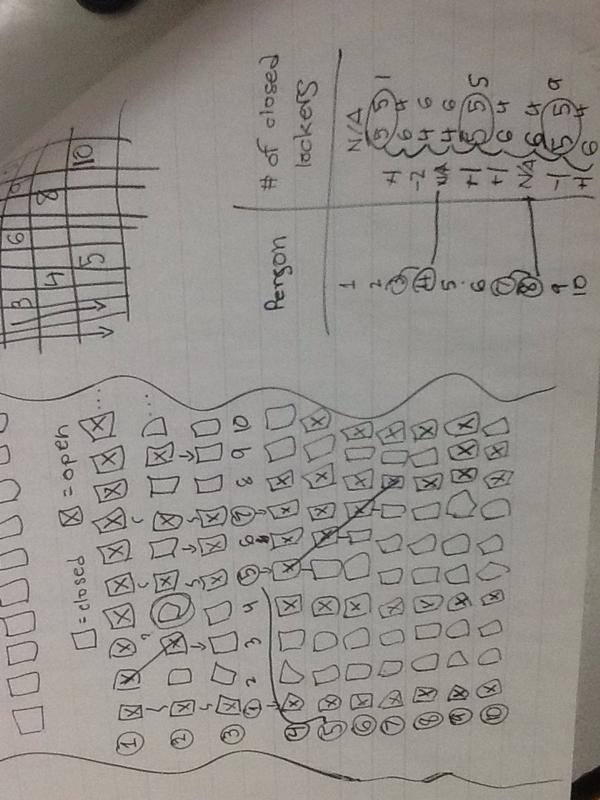 13 6
4 8
5 10
Person # of closed lockers
1 N/A
2 +1 5 5 1
3 6 4
4 -2 4 6
5 N/A 4 6
6 +1 5 5 5
7 +1 6 4
8 N/A 6 4
9 -1 5 5 9
10 +1 6 4
□ = closed ☒ = open
1 ...
2 ...
3
1 2 3 4 5 6 7 8 9 10
4
5
6
7
8
9
10